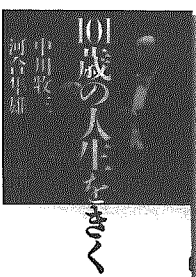 101歳の人生をきく
中川牧三
河合隼雄